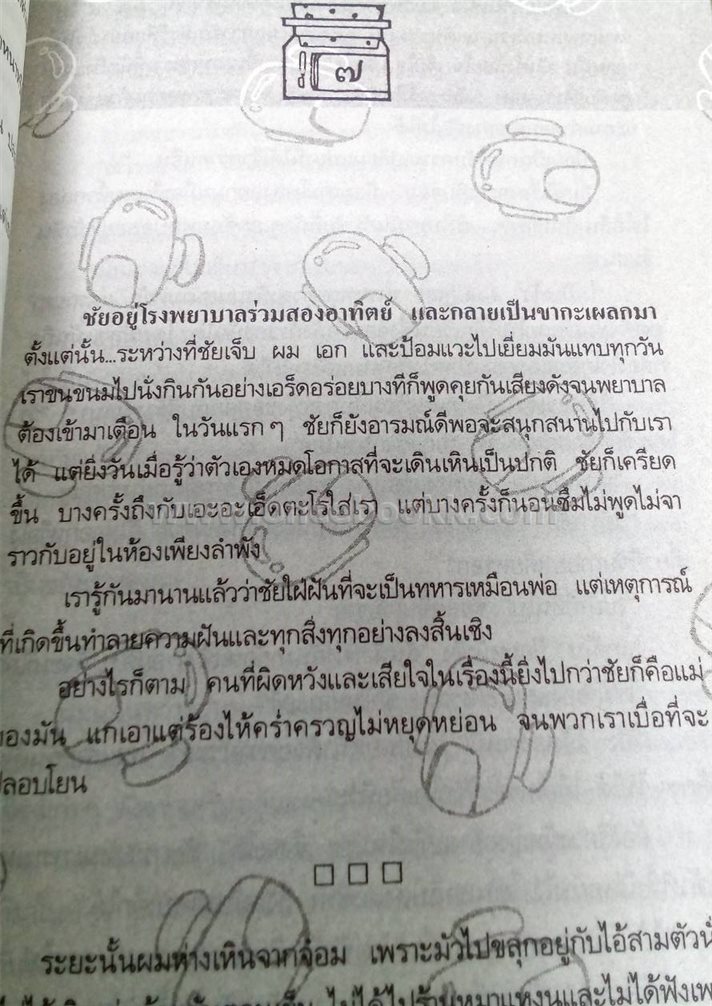 ๗
ชัยอยู่โรงพยาบาลร่วมสองอาทิตย์ และกลายเป็นขากะเผลกมา
ตั้งแต่นั้น...ระหว่างที่ชัยเจ็บ ผม เอก และป้อมแวะไปเยี่ยมมันแทบทุกวัน
เราขนขนมไปนั่งกินกันอย่างเอร็ดอร่อยบางทีก็พูดคุยกันเสียงดังจนพยาบาล
ต้องเข้ามาเตือน ในวันแรก ๆ ชัยก็ยังอารมณ์ดีพอจะสนุกสนานไปกับเรา
ได้ แต่ยิ่งวันเมื่อรู้ว่าตัวเองหมดโอกาสที่จะเดินเหินเป็นปกติ ชัยก็เครียด
ขึ้น บางครั้งถึงกับเอะอะเฮ็ดตะโรใส่เรา แต่บางครั้งก็นอนซึมไม่พูดไม่จา
ราวกับอยู่ในห้องเพียงลำพัง
เรารู้กันมานานแล้วว่าชัยใฝ่ฝันที่จะเป็นทหารเหมือนพ่อ แต่เหตุการณ์
ที่เกิดขึ้นทำลายความฝันและทุกสิ่งทุกอย่างลงสิ้นเชิง
อย่างไรก็ตาม คนที่ผิดหวังและเสียใจในเรื่องนี้ยิ่งไปกว่าชัยก็คือแม่
ของมัน แกเอาแต่ร้องไห้คร่ำครวญไม่หยุดหย่อน จนพวกเราเบื่อที่จะ
ปลอบโยน
□ □ □
ระยะนั้นผมห่างเหินจากจ๋อม เพราะมัวไปขลุกอยู่กับไอ้สามตัวนั่